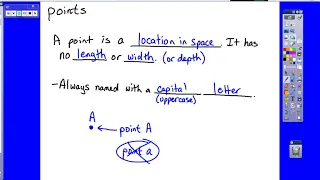 points
A point is a location in space. It has
no length or width. (or depth)
-Always named with a capital letter
(uppercase)
A
point A
point a